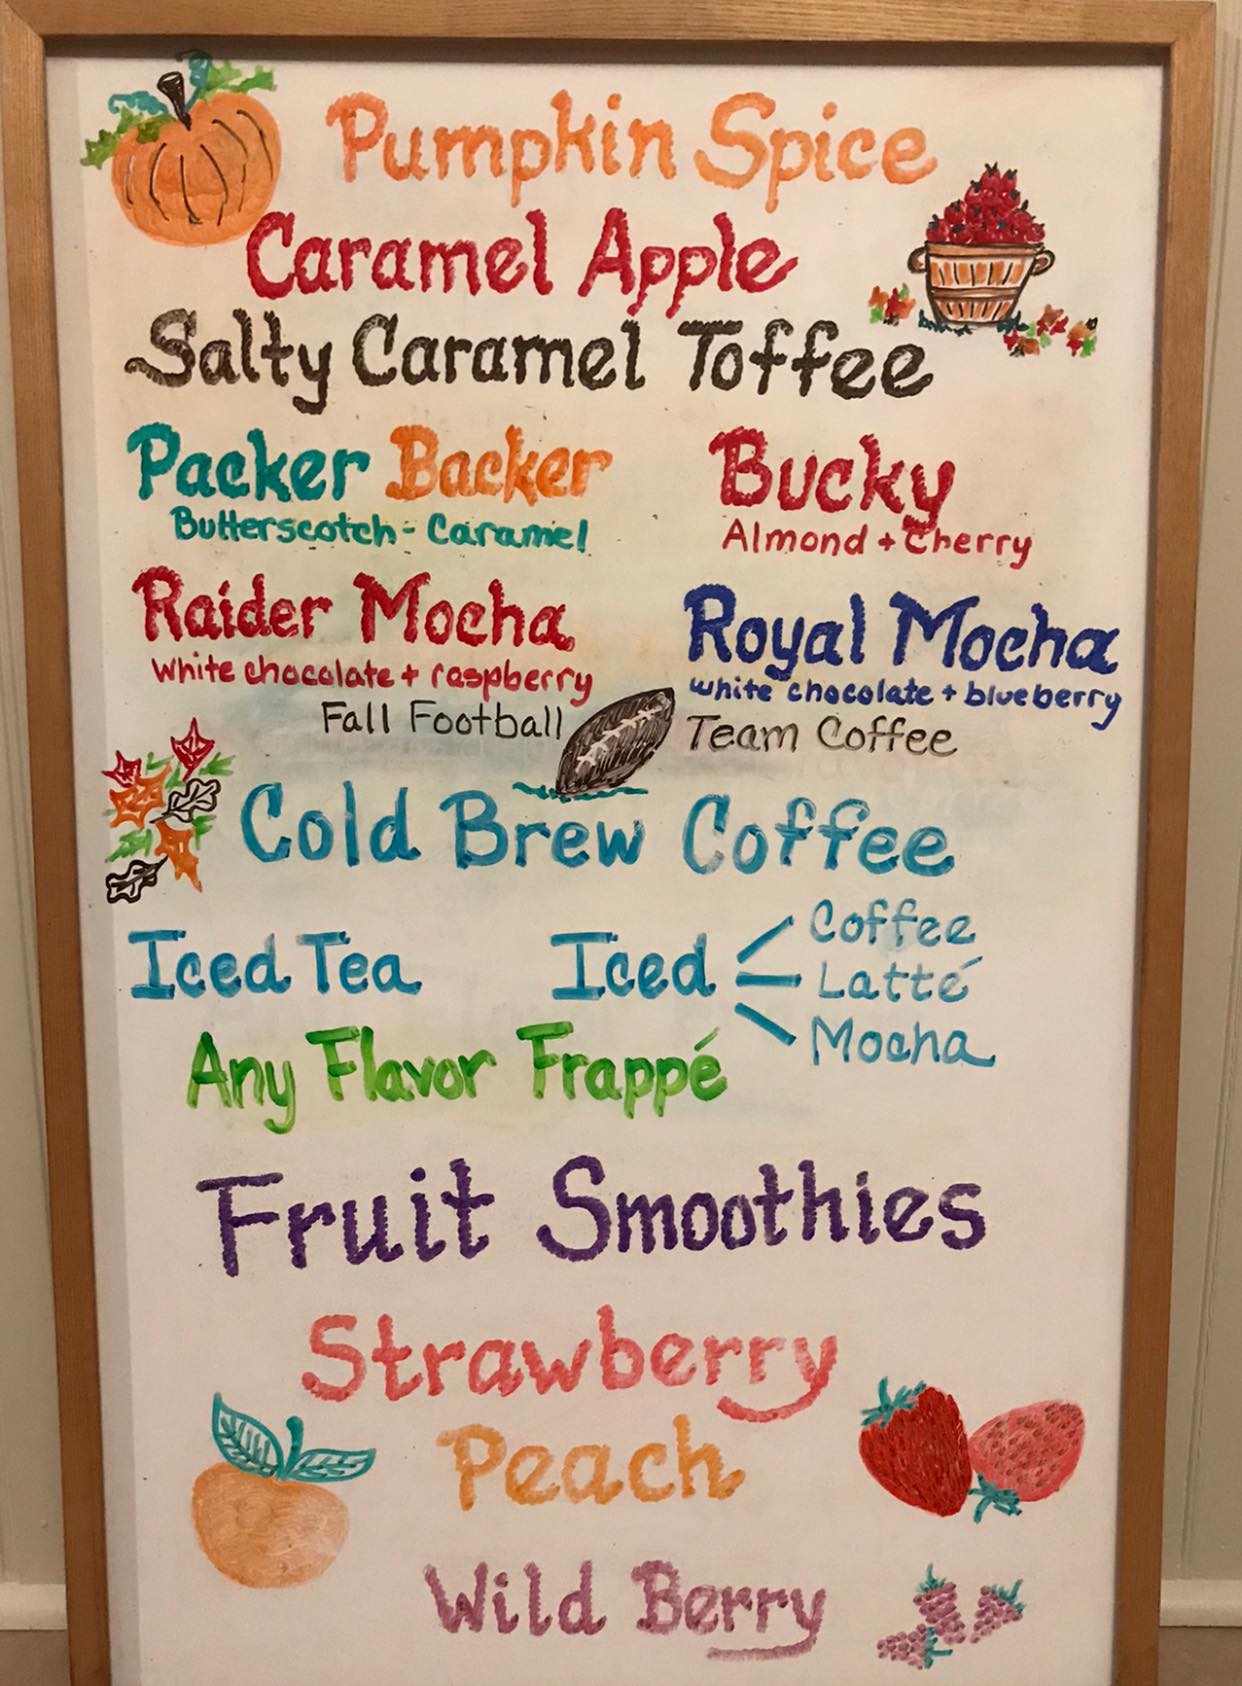 Pumpkin Spice
Caramel Apple
Salty Caramel Toffee
Packer Backer
Butterscotch - Caramel
Bucky
Almond + Cherry
Raider Mocha
White chocolate + raspberry
Royal Mocha
white chocolate + blueberry
Fall Football Team Coffee
Cold Brew Coffee
Iced Tea
Iced
Coffee
Latté
Mocha
Any Flavor Frappé
Fruit Smoothies
Strawberry
Peach
Wild Berry